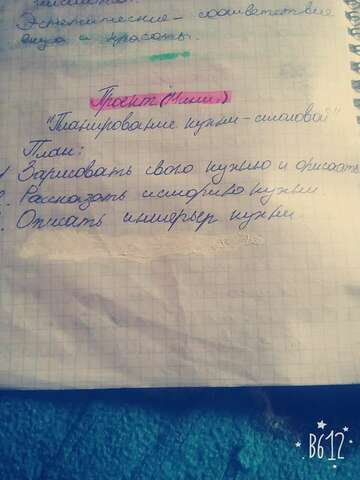 Эстетические - соответствие
вкуса и красоты.
Проект (Ч
"Планирование кухни-столовой"
План:
Зарисовать свою кухню и описать
2. Рассказать историю кухни
Описать интерьер кухни
B612